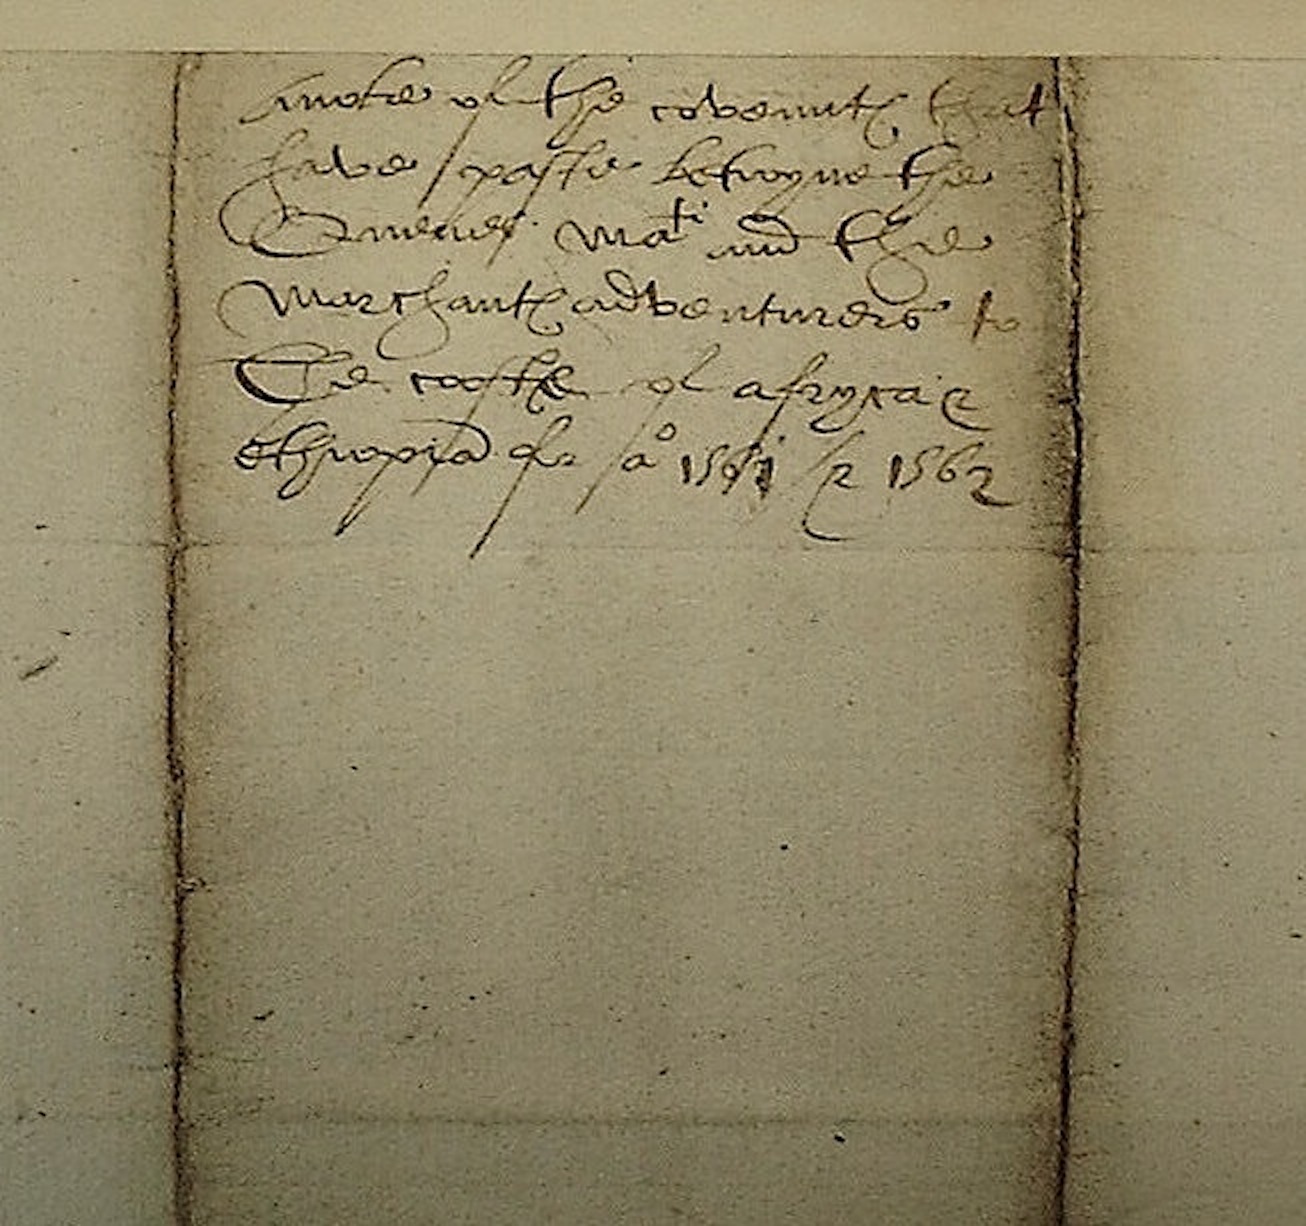 A note of the covenntes that
have paste betwyne the
Quenes Mati and the
Marchantes adventurers to
the coste of afryca &
ethiopia for ao 1561 & 1562